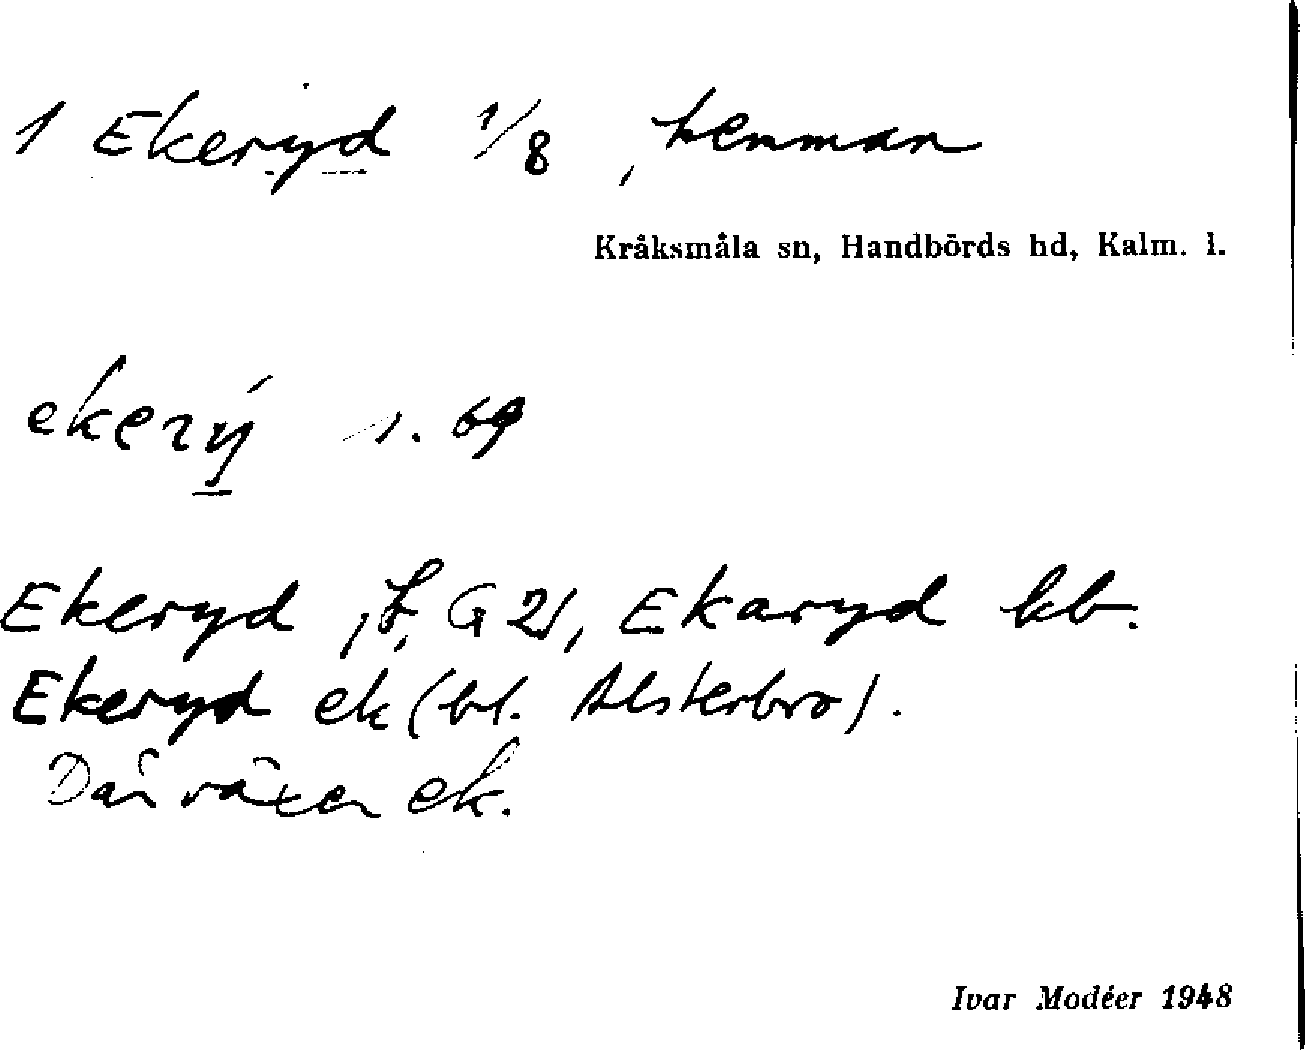 1 Ekeryd 1/8, hemman
Kråksmåla sn, Handbörds hd, Kalm. l.
ekerý s. 69
Ekeryd, G 21, Ekaryd kb.
Ekeryd ek (bl. Alsterbro).
Där växer ek.
Ivar Modéer 1948